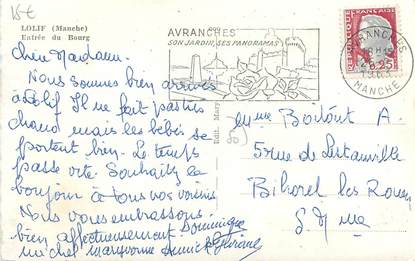 15€
LOLIF (Manche)
Entrée du Bourg
Chère Madame.
Nous sommes bien arrivés
à Lolif Il ne fait pas très
chaud mais les bébés se
portent bien. Le temps
passe vite. Souhaitez le
bonjour à tous nos voisins
Nous vous embrassons
bien affectueusement Dominique
Michel Maryvonne
AVRANCHES
SON JARDIN, SES PANORAMAS
AVRANCHES
18 H 45
1963
MANCHE
0,25
Edit. Mary
Mme A.
5 rue de
Bihorel les Rouen
S. Mme